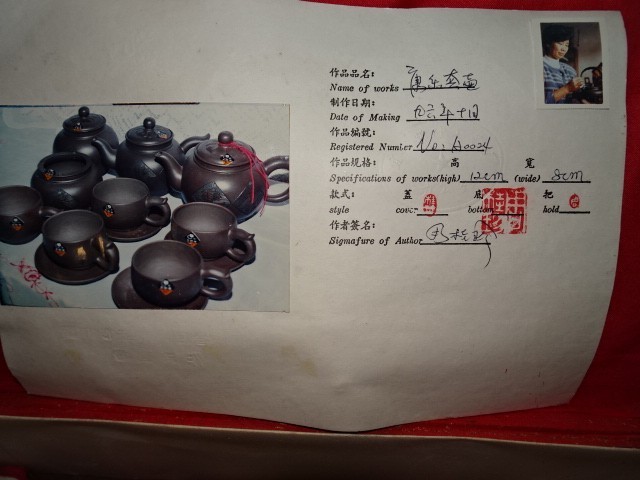 作品品名:
Name of works 康乐套壶
制作日期:
Date of Making 九三年十月
作品編號:
Registered Number No: A0024
作品規格: 高 寬
Specifications of works(high) 12cm (wide) 8cm
款式: 蓋 底 把
style cover bottom hold
作者签名:
Sigmafure of Author